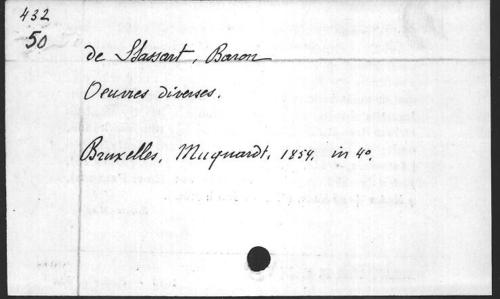 432
50
de Stassart, Baron
Oeuvres diverses.
Bruxelles, Muquardt, 1854. in 4o.